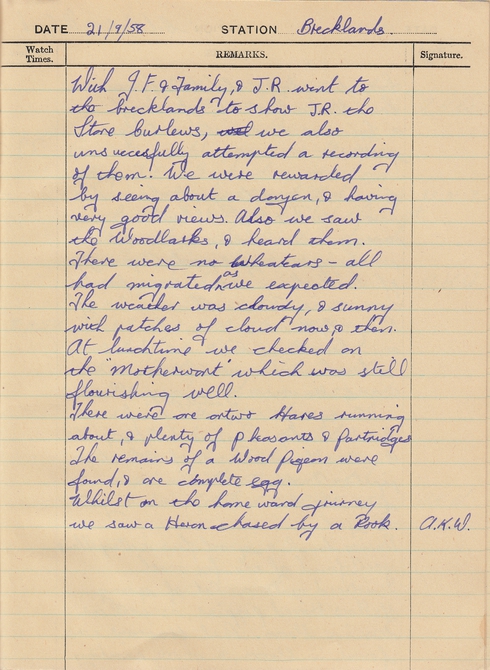 DATE 21/9/58 STATION Brecklands.
Watch Times. REMARKS. Signature.
With J.F. & Family, & J.R. went to
the brecklands to show J.R. the
Stone Curlews, we also
unsuccesfully attempted a recording
of them. We were rewarded
by seeing about a donzen, & having
very good views. Also we saw
the Woodlarks, & heard them.
There were no Wheatears - all
had migrated as we expected.
The weather was cloudy, & sunny
with patches of cloud now & then.
At lunchtime we checked on
the "Motherwort" which was still
flourishing well.
There were one or two Hares running
about, & plenty of pheasants & Partridges
The remains of a Wood Pigeon were
found, & one complete egg.
Whilst on the home ward journey
we saw a Heron chased by a Rook. A.K.W.